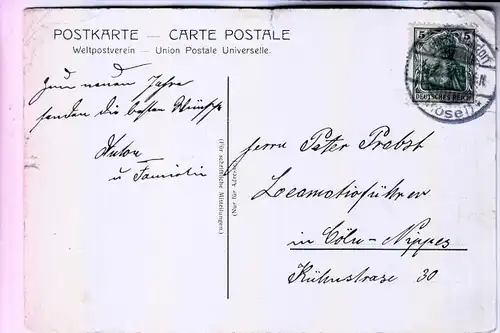 POSTKARTE — CARTE POSTALE
Weltpostverein — Union Postale Universelle.
5 5
DEUTSCHES REICH
Zum neuen Jahre
senden die besten Wünsche
Anton
u Familie
(Für schriftliche Mitteilungen.)
(Nur für Adresse.)
Herrn Peter Probst
Locomotivführer
in Cöln-Nippes
Kühnstrasse 30